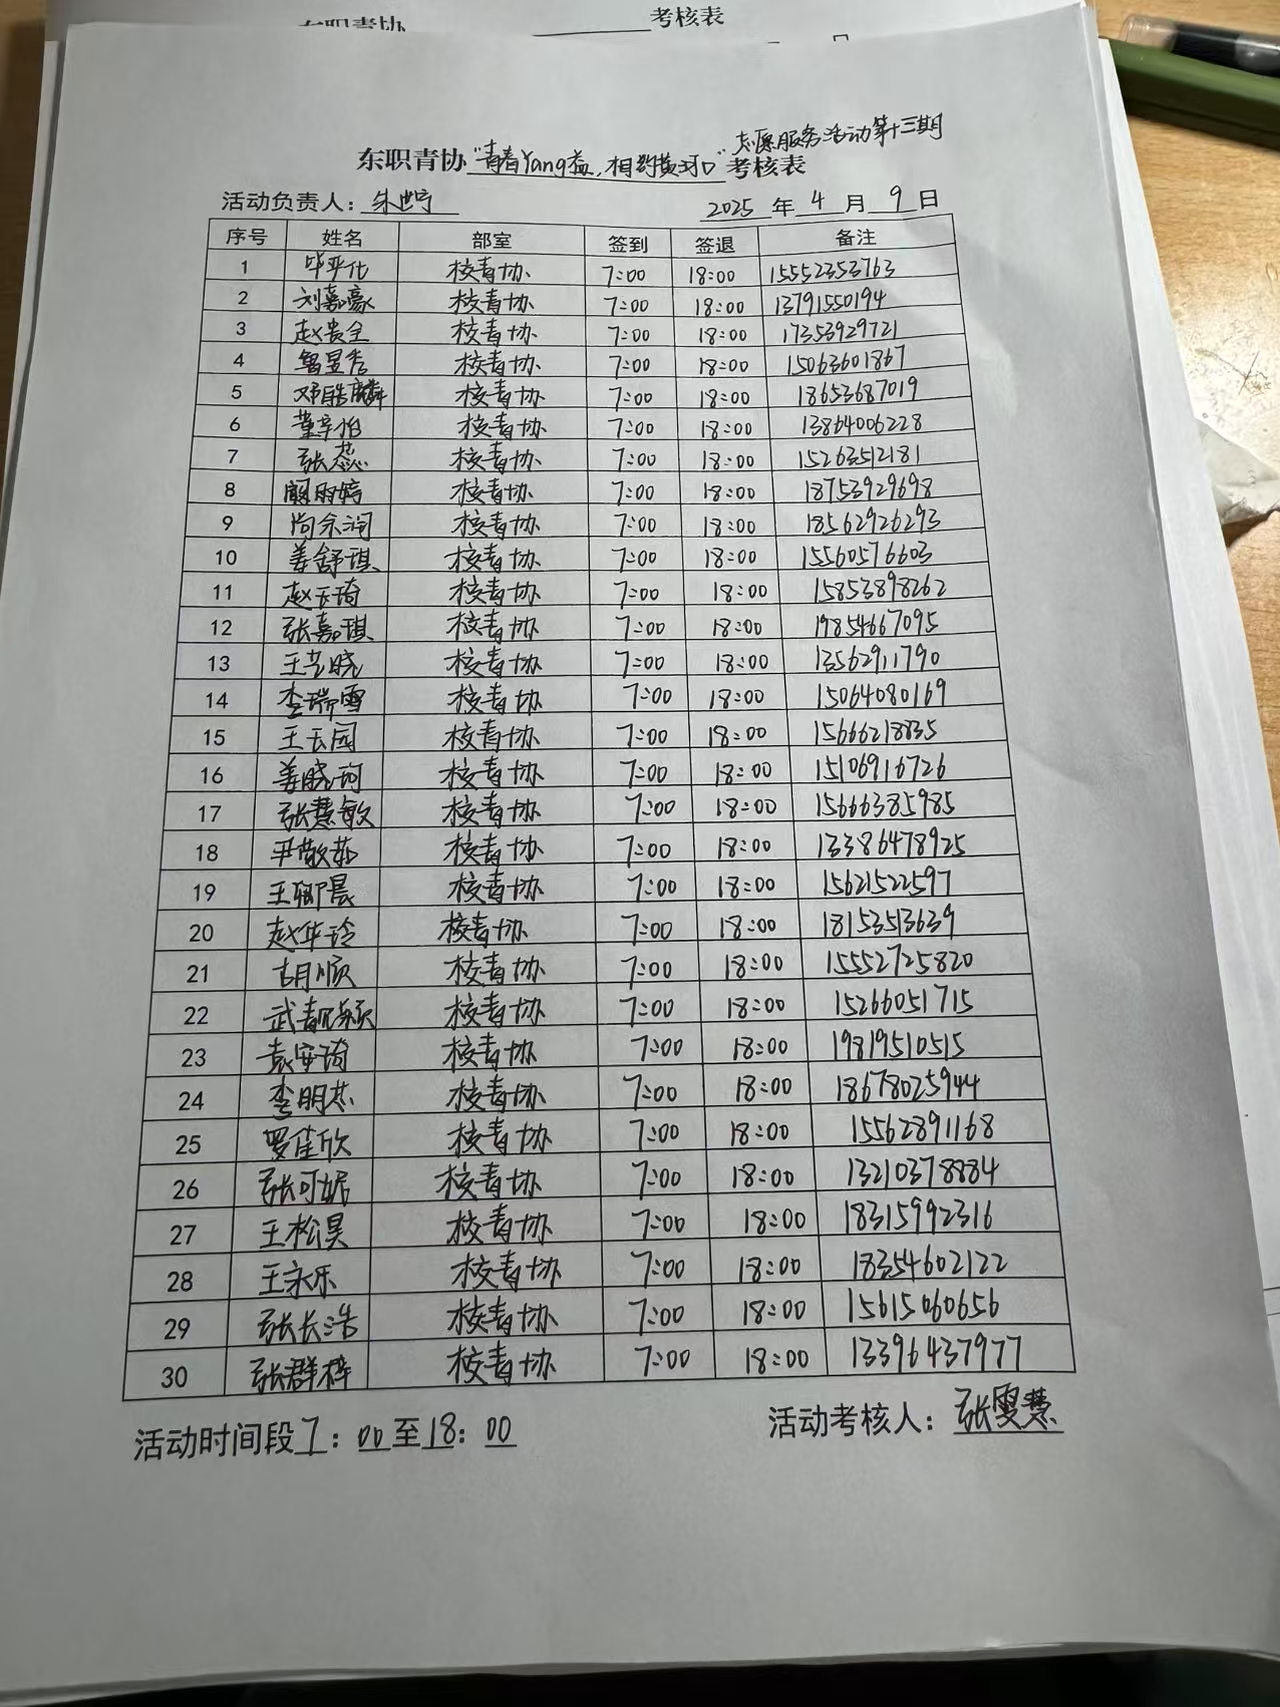 考核表
东职青协
志愿服务活动第十三期
东职青协"青春Yang益,相约黄河口"考核表
活动负责人: 朱世宁 2025年4月9日
序号 姓名 部室 签到 签退 备注
1 毕平化 校青协 7:00 18:00 15552353763
2 刘嘉豪 校青协 7:00 18:00 13791550194
3 赵贵全 校青协 7:00 18:00 17353929721
4 鲁昱秀 校青协 7:00 18:00 15063601867
5 邓皓麟 校青协 7:00 18:00 18653687019
6 董宇恒 校青协 7:00 18:00 13864006228
7 张蕊 校青协 7:00 18:00 15263512181
8 雨婷 校青协 7:00 18:00 18753929698
9 尚余润 校青协 7:00 18:00 18562926293
10 姜舒琪 校青协 7:00 18:00 15560576603
11 赵云琦 校青协 7:00 18:00 15853898262
12 张嘉琪 校青协 7:00 18:00 19854667095
13 王艺晓 校青协 7:00 18:00 13562911790
14 李瑞雪 校青协 7:00 18:00 15064080169
15 王云园 校青协 7:00 18:00 15666218835
16 姜晓珂 校青协 7:00 18:00 15106916726
17 张慧敏 校青协 7:00 18:00 15666385985
18 尹敬茹 校青协 7:00 18:00 13386478925
19 王晨 校青协 7:00 18:00 15621522597
20 赵华玲 校青协 7:00 18:00 18153513639
21 胡顺 校青协 7:00 18:00 15552725820
22 武靓颖 校青协 7:00 18:00 15266051715
23 袁安琦 校青协 7:00 18:00 19819510515
24 李明杰 校青协 7:00 18:00 18678025944
25 罗佳欣 校青协 7:00 18:00 15562891168
26 张可妮 校青协 7:00 18:00 13210378884
27 王松昊 校青协 7:00 18:00 18315992316
28 王永乐 校青协 7:00 18:00 18354602122
29 张长浩 校青协 7:00 18:00 15615060656
30 张群梓 校青协 7:00 18:00 13396437977
活动时间段7:00至18:00 活动考核人: 张雯慧